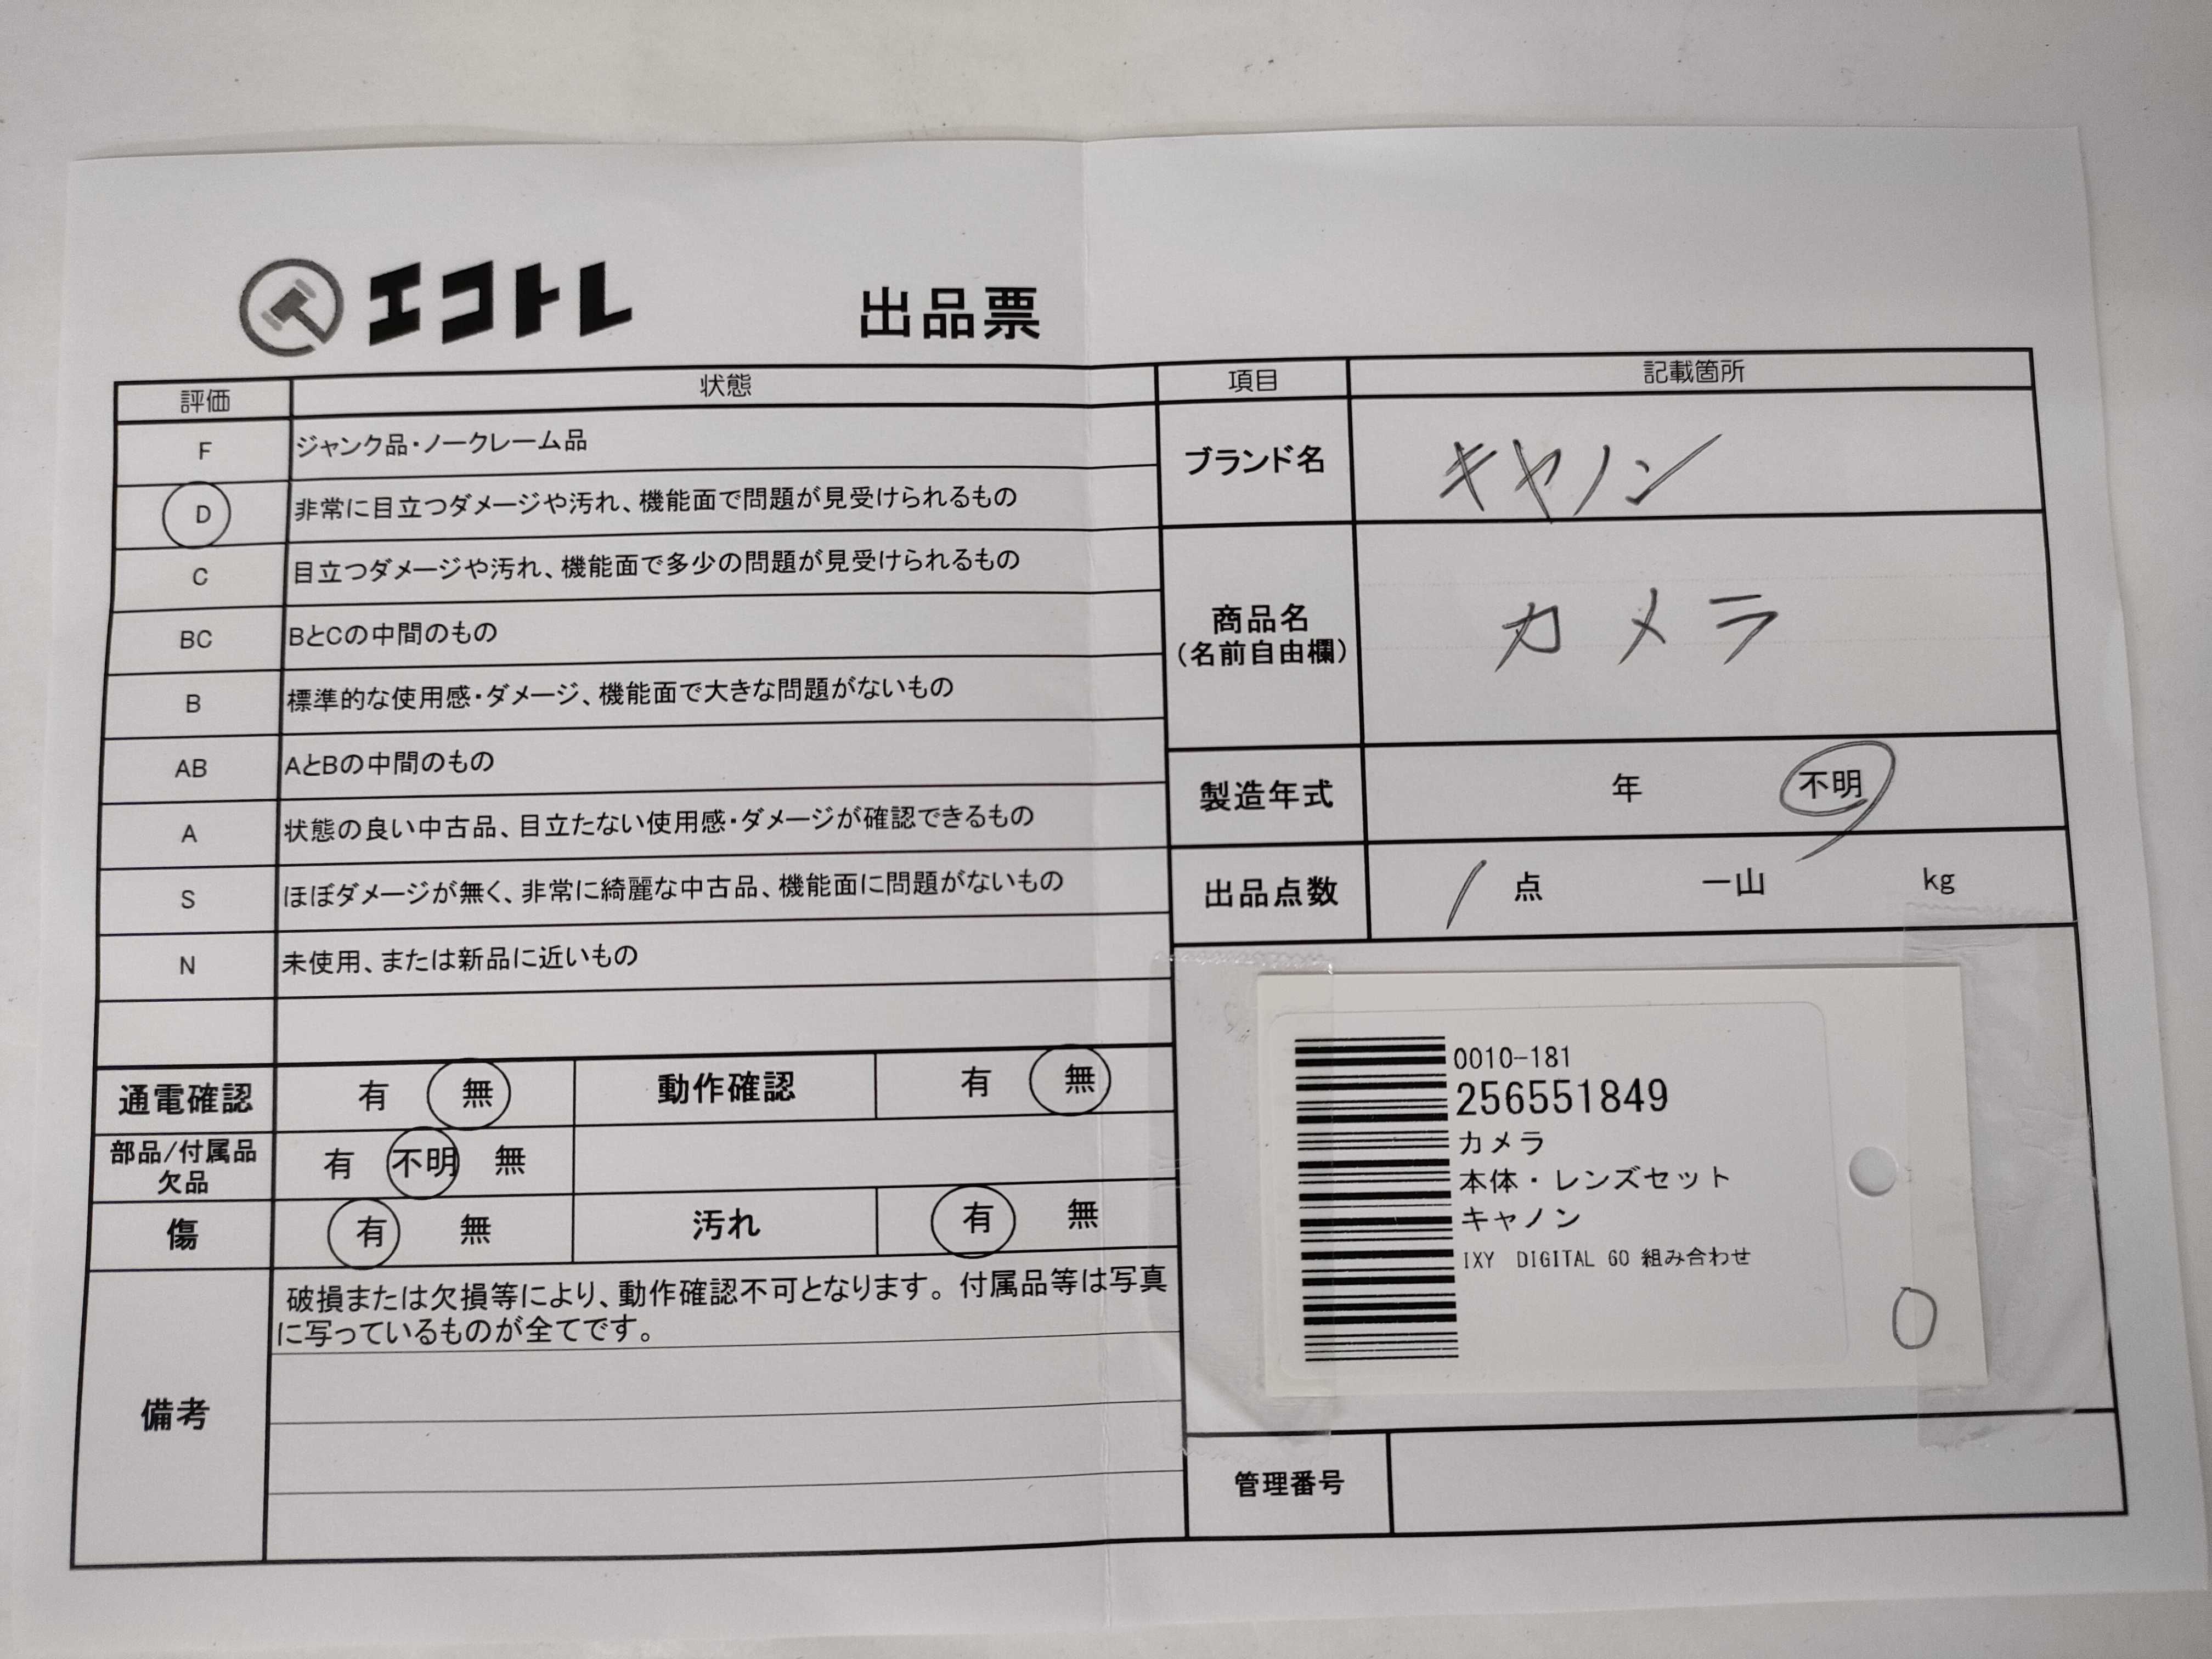 エコトレ 出品票
評価 状態
F ジャンク品・ノークレーム品
D 非常に目立つダメージや汚れ、機能面で問題が見受けられるもの
C 目立つダメージや汚れ、機能面で多少の問題が見受けられるもの
BC BとCの中間のもの
B 標準的な使用感・ダメージ、機能面で大きな問題がないもの
AB AとBの中間のもの
A 状態の良い中古品、目立たない使用感・ダメージが確認できるもの
S ほぼダメージが無く、非常に綺麗な中古品、機能面に問題がないもの
N 未使用、または新品に近いもの
通電確認 有 無 動作確認 有 無
部品/付属品
欠品 有 不明 無
傷 有 無 汚れ 有 無
備考
破損または欠損等により、動作確認不可となります。付属品等は写真
に写っているものが全てです。
項目 記載箇所
ブランド名 キヤノン
商品名
(名前自由欄) カメラ
製造年式 年 不明
出品点数 1 点 一山 kg
0010-181
256551849
カメラ
本体・レンズセット
キャノン
IXY DIGITAL 60 組み合わせ
0
管理番号